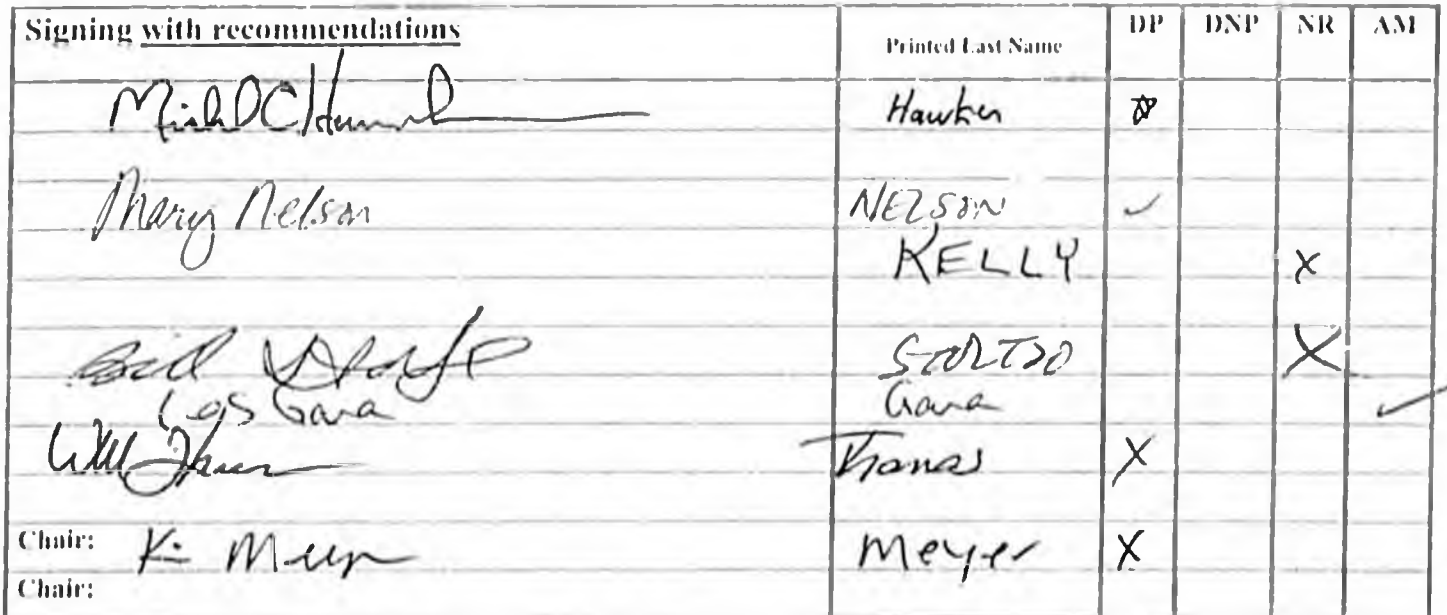 Signing with recommendations Printed Last Name DP DNP NR AM
Hawker
Mary Nelson NELSON ✓
KELLY X
X
Les Gara Gara ✓
Thomas X
Chair: K. Meyer Meyer X
Chair: